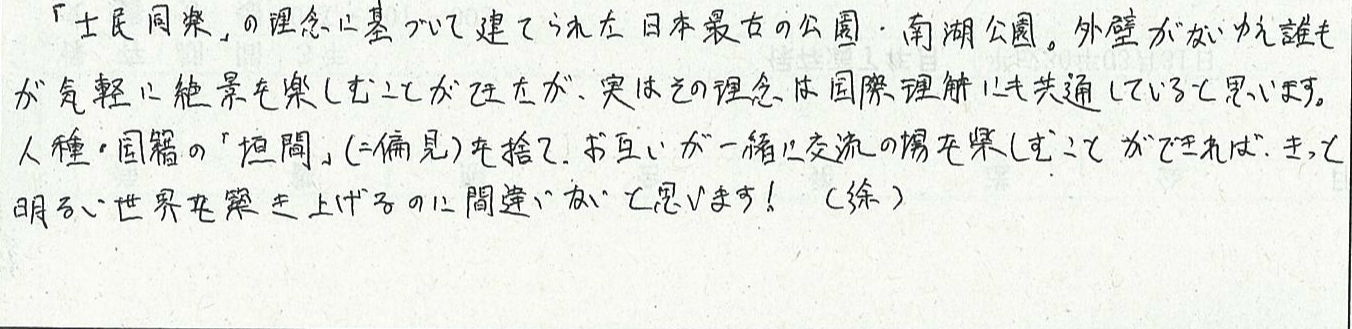 「士民同楽」の理念に基づいて建てられた日本最古の公園・南湖公園。外壁がないゆえ誰も
が気軽に絶景を楽しむことができたが、実はその理念は国際理解にも共通していると思います。
人種・国籍の「垣間」(=偏見)を捨て、お互いが一緒に交流の場を楽しむことができれば、きっと
明るい世界を築き上げるのに間違いないと思います! (徐)